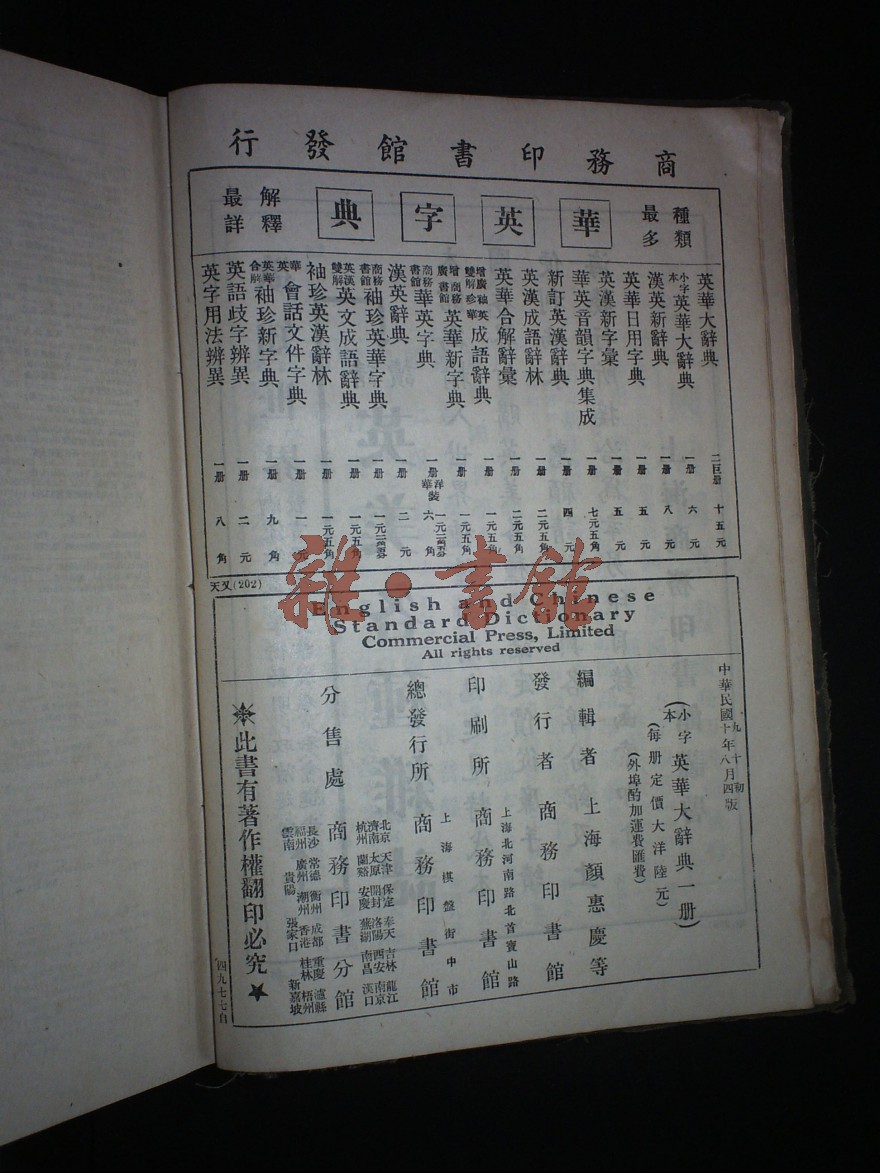 商務印書館發行
種類最多
華英字典
解釋最詳
英華大辭典 二巨册 十五元
小字本英華大辭典 一册 六元
漢英新辭典 一册 八元
英華日用字典 一册 五元
英漢新字彙 一册 五元
華英音韻字典集成 一册 七元五角
新訂英漢辭典 一册 四元
英漢成語辭林 一册 二元五角
英華合解辭彙 一册 二元五角
增廣雙解袖珍英華成語辭典 一册 一元五角
增廣商務書館英華新字典 一册 一元五角
商務書館華英字典 一册 洋裝 一元二角 華裝 六角
漢英辭典 一册 二元
商務書館袖珍英華字典 一册
英漢雙解英文成語辭典 一册 一元五角
袖珍英漢辭林 一册 一元五角
英華會話文件字典 一册 一元
英華合解袖珍新字典 一册 九角
英語歧字辨異 一册 二元
英字用法辨異 一册 八角
天又(202)
雜·書館
English and Chinese
Standard Dictionary
Commercial Press, Limited
All rights reserved
中華民國十年八月四版
(小字本英華大辭典一册)
(每册定價大洋陸元)
(外埠酌加運費匯費)
編輯者 上海顏惠慶等
發行者 商務印書館
上海北河南路北首寶山路
印刷所 商務印書館
上海棋盤街中市
總發行所 商務印書館
北京 天津 保定 奉天 吉林 龍江
濟南 太原 開封 洛陽 西安 南京
杭州 蘭谿 安慶 蕪湖 南昌 漢口
分售處 商務印書分館
長沙 常德 衡州 成都 重慶 瀘縣
福州 廣州 潮州 香港 桂林 梧州
雲南 貴陽 張家口 新嘉坡
※此書有著作權翻印必究★
四九七七自